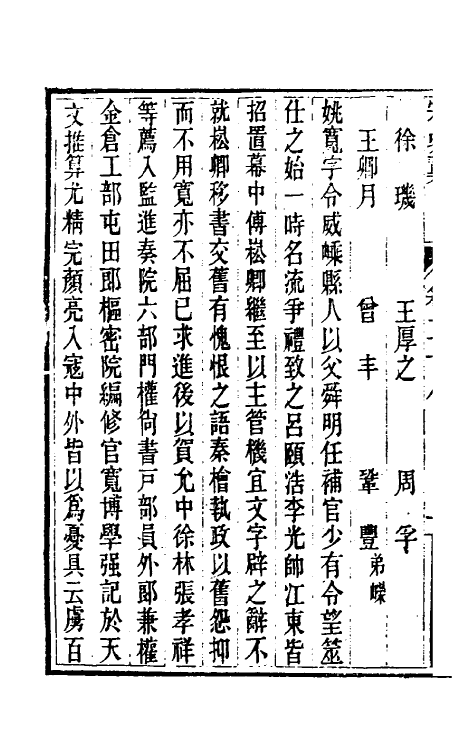 徐璣　王厚之　周孚
王卿月　曾丰　鞏豐弟嶸
姚寬字令威嵊縣人以父舜明任補官少有令望筮
仕之始一時名流爭禮致之呂頤浩李光帥江東皆
招置幕中傅崧卿繼至以主管機宜文字辟之辭不
就崧卿移書交舊有愧恨之語秦檜執政以舊怨抑
而不用寬亦不屈己求進後以賀允中徐林張孝祥
等薦入監進奏院六部門權尙書戸部員外郎兼權
金倉工部屯田郎樞密院編修官寬博學强記於天
文推算尤精完顏亮入寇中外皆以爲憂具云虜百